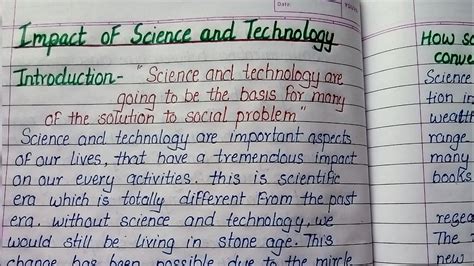 Date
Impact of Science and Technology
Introduction- "Science and technology are
going to be the basis for many
of the solution to social problem"
Science and technology are important aspects
of our lives, that have a tremendous impact
on our every activities. this is scientific
era which is totally different from the past
era. without science and technology, we
would still be living in stone age. This
change has been possible due to the mircle
How
conve
Science
tion in
wealth
range
many
books
The
new